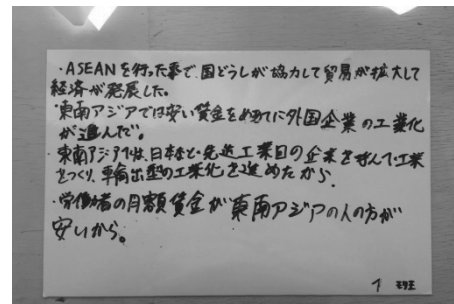 ・ASEANを行った事で、国どうしが協力して貿易が拡大して
経済が発展した。
・東南アジアでは安い賃金をめあてに外国企業の工業化
が進んだ。
・東南アジアでは、日本など先進工業国の企業を呼んで工業
をつくり、輸出型の工業化を進めたから
・労働者の月額賃金が東南アジアの人の方が
安いから。